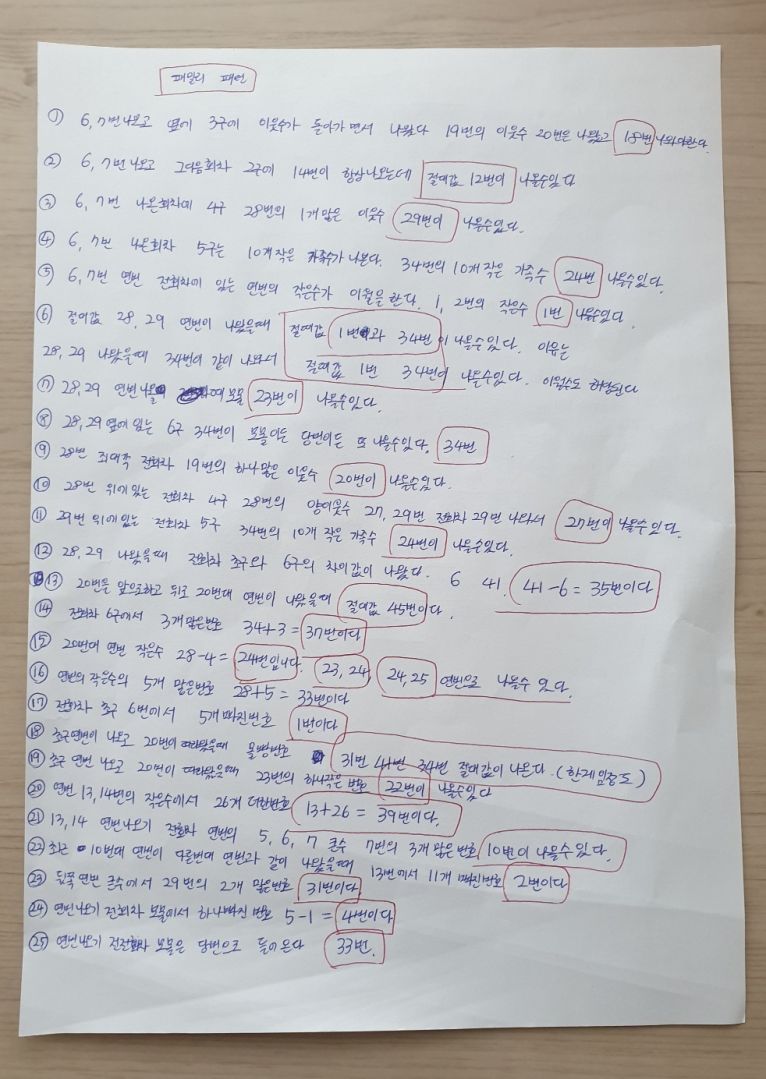 패밀리 패턴
① 6, 7번 나오고 옆에 3구에 이웃수가 돌아가면서 나왔다 19번의 이웃수 20번은 나왔고 18번 나와야한다.
② 6, 7번 나오고 그다음회차 2구에 14번이 항상나오는데 절대값 12번이 나올수있다
③ 6, 7번 나온회차에 4구 28번의 1개 많은 이웃수 29번이 나올수있다.
④ 6, 7번 나온회차 5구는 10개 작은 가족수가 나온다. 34번의 10개 작은 가족수 24번 나올수있다.
⑤ 6, 7번 연번 전회차에 있는 연번의 작은수가 이월을 한다. 1, 2번의 작은수 1번 나올수있다
⑥ 절대값 28, 29 연번이 나왔을때 절대값 1번과 34번이 나올수있다. 이유는
28, 29 나왔을때 34번이 같이 나와서 절대값 1번 34번이 나올수있다. 이월수도 해당된다
⑦ 28, 29 연번나올 때 보볼 23번이 나올수있다.
⑧ 28, 29 옆에 있는 6구 34번이 보볼이든 당번이든 또 나올수있다. 34번
⑨ 28번 좌대각 전회차 19번의 하나많은 이웃수 20번이 나올수있다.
⑩ 28번 위에있는 전회차 4구 28번의 양이웃수 27, 29번 전회차 29번 나와서 27번이 나올수 있다.
⑪ 29번 위에있는 전회차 5구 34번의 10개 작은 가족수 24번이 나올수있다.
⑫ 28, 29 나왔을때 전회차 초구와 6구의 차이값이 나왔다. 6 41. 41-6=35번이다
⑬ 20번을 앞으로하고 뒤로 20번대 연번이 나왔을때 절대값 45번이다.
⑭ 전회차 6구에서 3개많은번호 34+3=37번이다
⑮ 20번대 연번 작은수 28-4=24번입니다. 23, 24, 24, 25 연번으로 나올수 있다.
⑯ 연번의 작은수의 5개 많은번호 28+5=33번이다
⑰ 전회차 초구 6번에서 5개빠진번호 1번이다
⑱ 초구연번이 나오고 20번이 따라왔을때 몰빵번호 31번 41번 34번 절대값이 나온다. (한게임정도)
⑲ 초구 연번 나오고 20번이 따라왔을때 23번의 하나작은 번호 22번이 나올수있다
⑳ 연번 13, 14번의 작은수에서 26개 더한번호 13+26=39번이다.
㉑ 13, 14 연번나오기 전회차 연번의 5, 6, 7 큰수 7번의 3개 많은번호 10번이 나올수 있다.
㉒ 최근 10번대 연번이 다른번대 연번과 같이 나왔을때 13번에서 11개 빠진번호 2번이다
㉓ 뒤쪽 연번 큰수에서 29번의 2개 많은번호 31번이다.
㉔ 연번나오기 전회차 보볼에서 하나빠진 번호 5-1=4번이다
㉕ 연번나오기 전전회차 보볼은 당번으로 들어온다 33번.